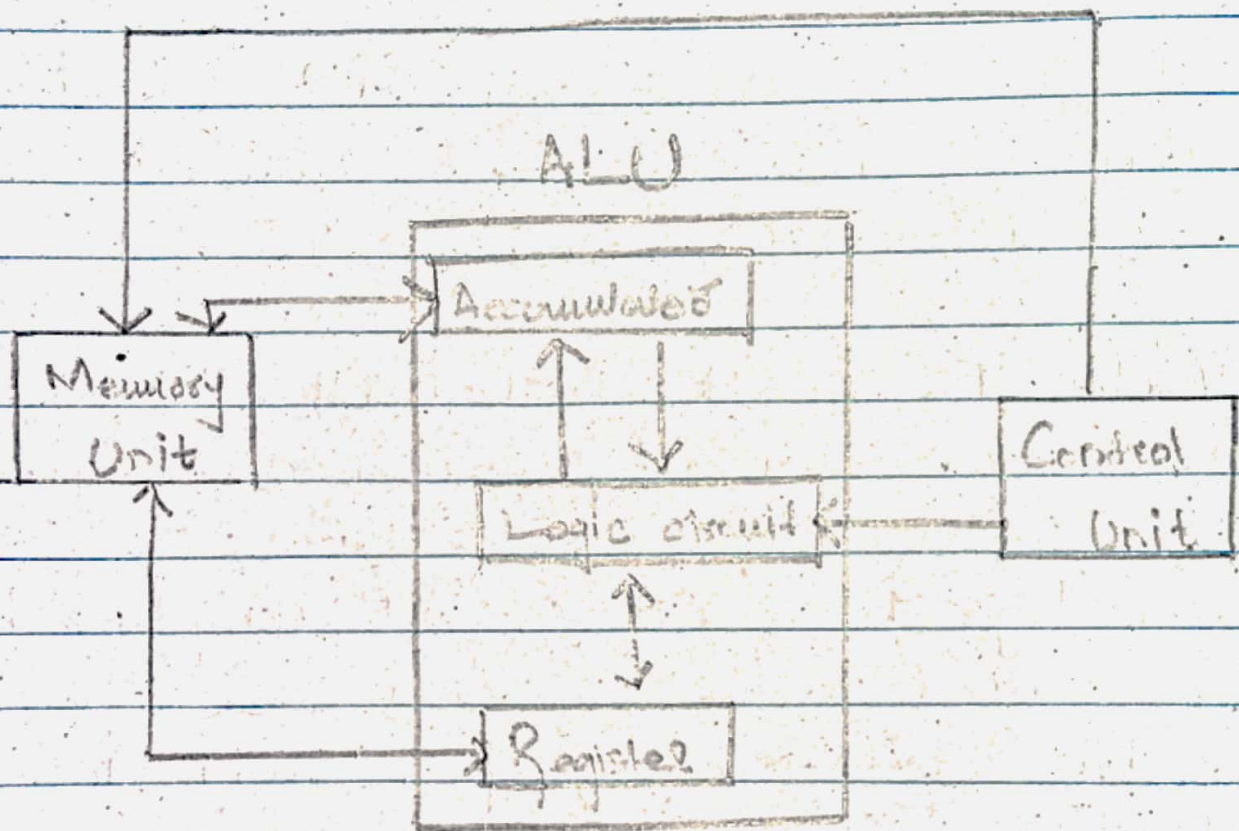 ALU
Accumulator
Memory
Unit
Logic circuit
Control
Unit
Register